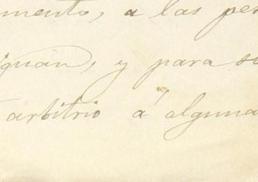 mento, a las per
iguan, y para se
arbitrio á alguna